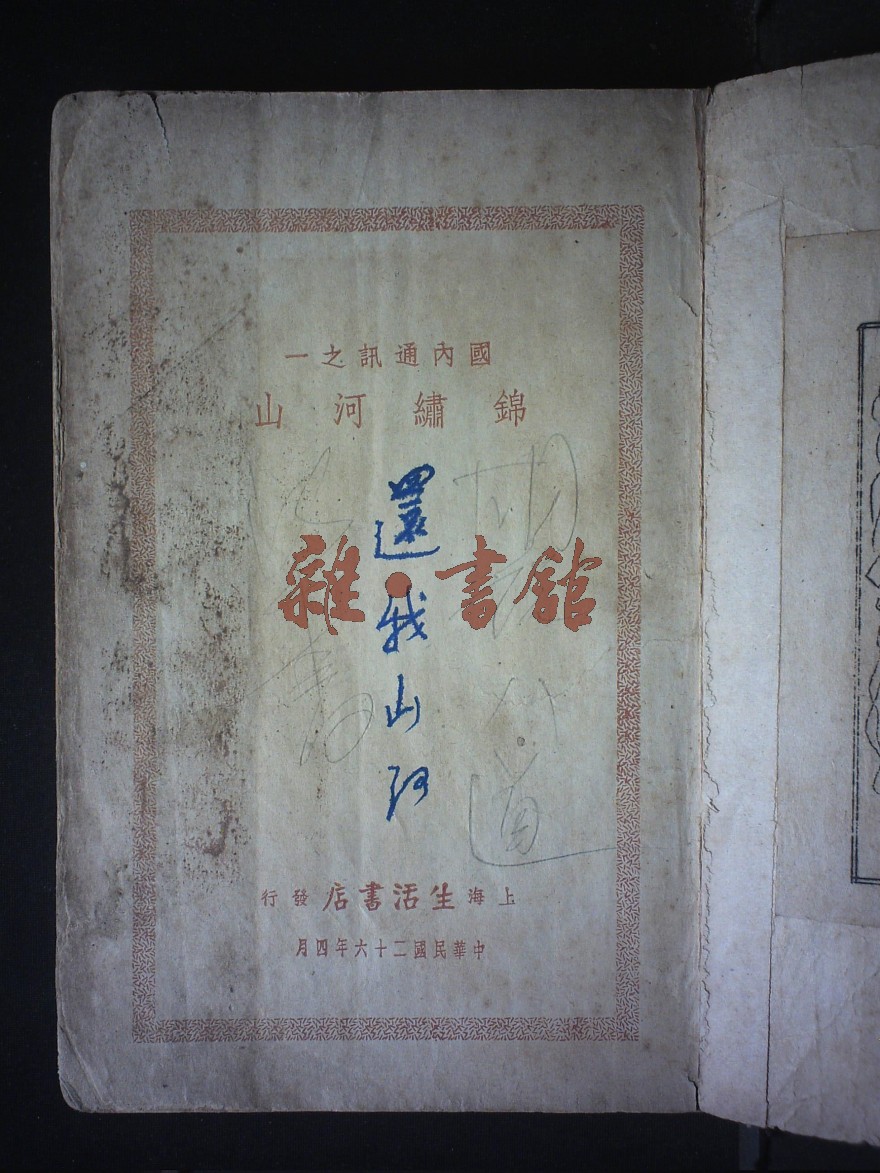 國內通訊之一
錦繡河山
還我山河
雜·書館
上海生活書店發行
中華民國二十六年四月